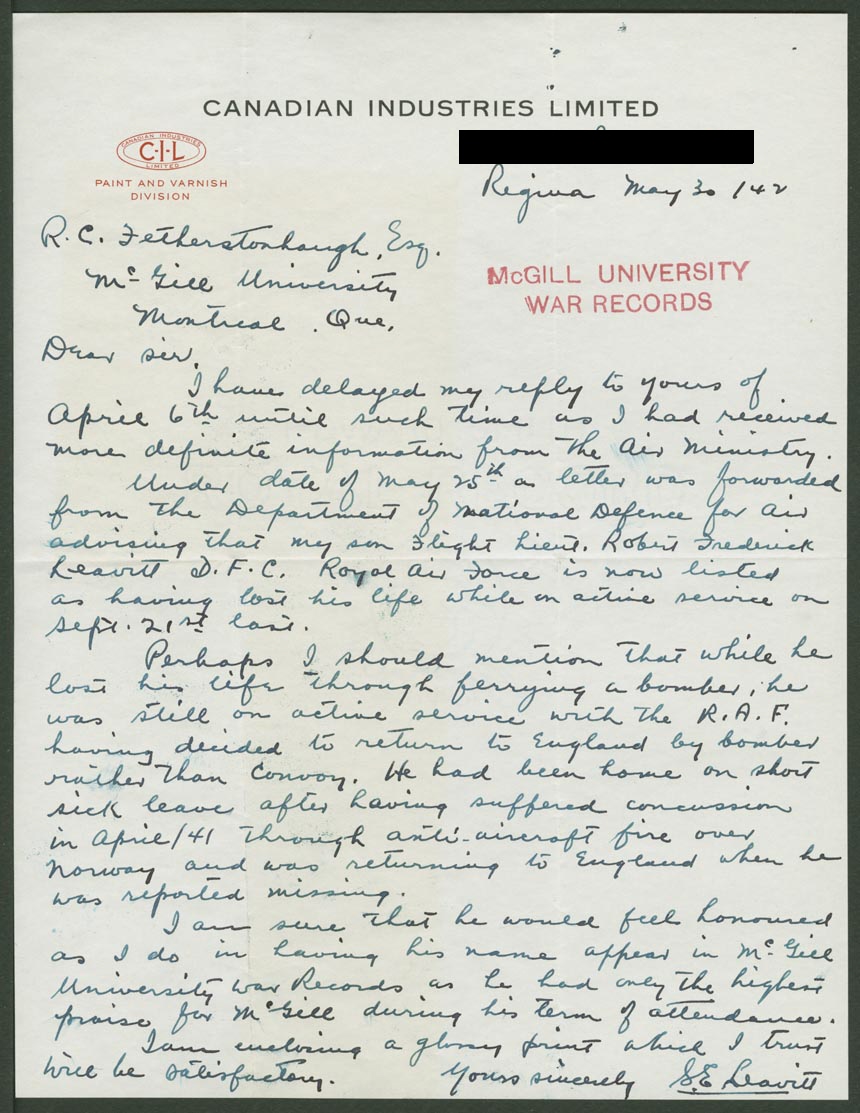 CANADIAN INDUSTRIES LIMITED
CANADIAN INDUSTRIES
C-I-L
LIMITED
PAINT AND VARNISH
DIVISION
Regina May 30/42
R.C. Fetherstonhaugh, Esq.
McGill University
Montreal, Que.
McGILL UNIVERSITY
WAR RECORDS
Dear sir,
I have delayed my reply to yours of
April 6th until such time as I had received
more definite information from the Air Ministry.
Under date of May 25th a letter was forwarded
from the Department of National Defence for Air
advising that my son Flight Lieut. Robert Frederick
Leavitt D.F.C. Royal Air Force is now listed
as having lost his life while on active service on
Sept. 21st last.
Perhaps I should mention that while he
lost his life through ferrying a bomber, he
was still on active service with the R.A.F.
having decided to return to England by bomber
rather than convoy. He had been home on short
sick leave after having suffered concussion
in April/41 through anti-aircraft fire over
Norway and was returning to England when he
was reported missing.
I am sure that he would feel honoured
as I do in having his name appear in McGill
University War Records as he had only the highest
praise for McGill during his term of attendance.
I am enclosing a glossy print which I trust
will be satisfactory. Yours sincerely S.E. Leavitt